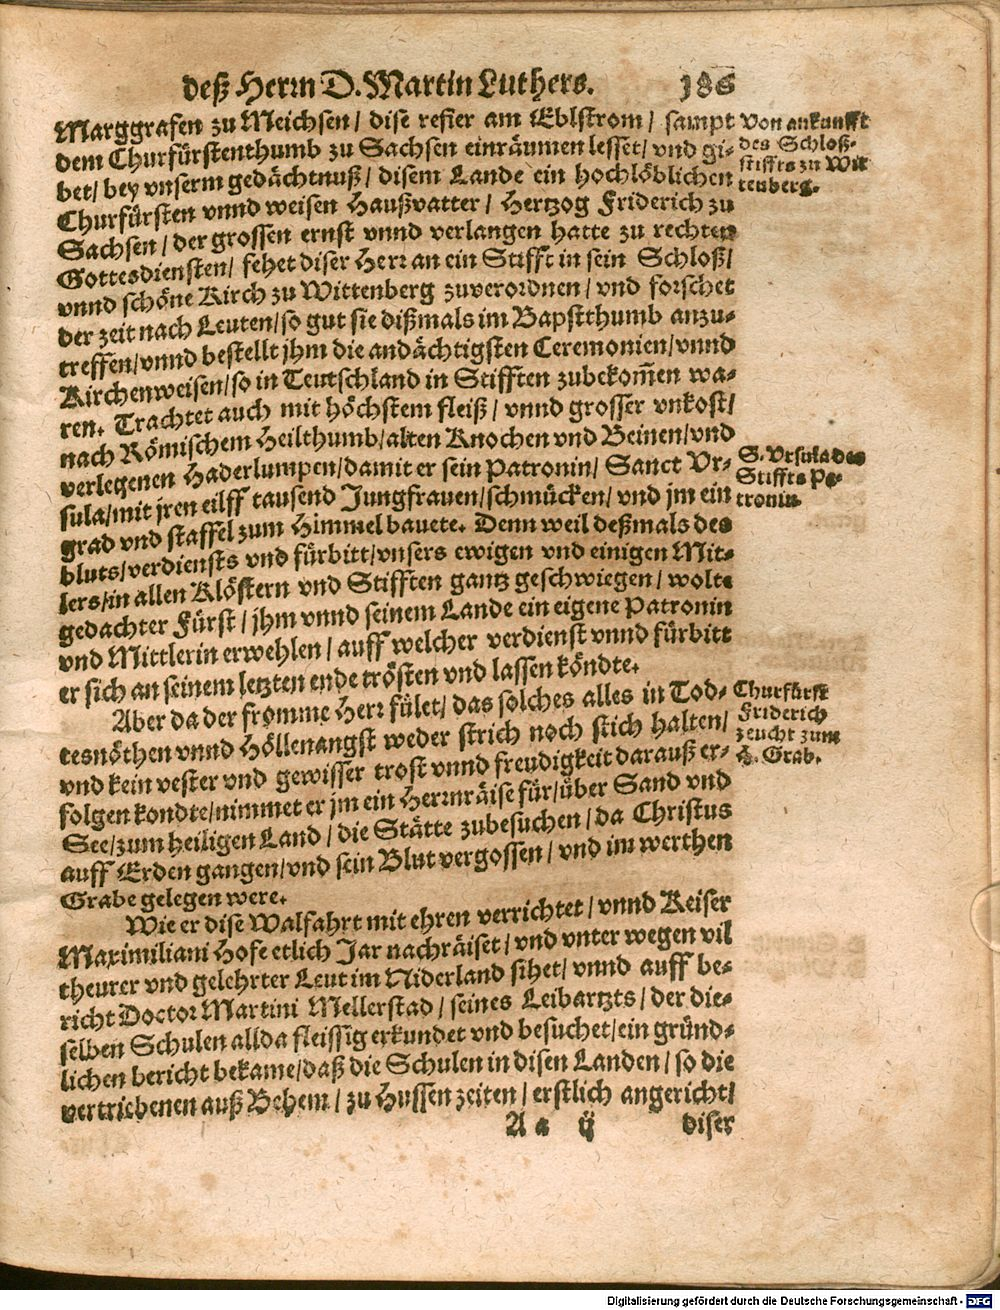 deß Herrn D. Martin Luthers. 186
Marggrafen zu Meichsen / dise refier am Eblstrom / sampt
dem Churfürstenthumb zu Sachsen einräumen lesset / vnd gi-
bet / bey vnserm gedächtnuß / disem Lande ein hochlöblichen
Churfürsten vnnd weisen Haußvatter / Hertzog Friderich zu
Sachsen / der grossen ernst vnnd verlangen hatte zu rechten
Gottesdiensten / fehet diser Herr an ein Stifft in sein Schloß /
vnnd schöne Kirch zu Wittenberg zuverordnen / vnd forschet
der zeit nach Leuten / so gut sie dißmals im Bapstthumb anzu-
treffen / vnnd bestellt jhm die andächtigsten Ceremonien / vnnd
Kirchenweisen / so in Teutschland in Stifften zubekom̃en wa-
ren. Trachtet auch mit höchstem fleiß / vnnd grosser vnkost /
nach Römischem Heilthumb / alten Knochen vnd Beinen / vnd
verlegenen Haderlumpen / damit er sein Patronin / Sanct Vr-
sula / mit jren eilff tausend Jungfrauen / schmücken / vnd jm ein
grad vnd staffel zum Himmel bauete. Denn weil deßmals des
bluts / verdiensts vnd fürbitt / vnsers ewigen vnd einigen Mit-
lers / in allen Klöstern vnd Stifften gantz geschwiegen / wolte
gedachter Fürst / jhm vnnd seinem Lande ein eigene Patronin
vnd Mittlerin erwehlen / auff welcher verdienst vnnd fürbitt
er sich an seinem letzten ende trösten vnd lassen köndte.
Aber da der fromme Herr fület / das solches alles in Tod-
tesnöthen vnnd Höllenangst weder strich noch stich halten /
vnd kein vester vnd gewisser trost vnnd freudigkeit darauß er-
folgen kondte / nimmet er jm ein Herrnräise für / über Sand vnd
See / zum heiligen Land / die Stätte zubesuchen / da Christus
auff Erden gangen / vnd sein Blut vergossen / vnd im werthen
Grabe gelegen were.
Wie er dise Walfahrt mit ehren verrichtet / vnnd Keiser
Maximiliani Hofe etlich Jar nachräiset / vnd vnter wegen vil
theurer vnd gelehrter Leut im Niderland sihet / vnnd auff be-
richt Doctor Martini Mellerstad / seines Leibartzts / der die-
selben Schulen allda fleissig erkundet vnd besuchet / ein gründ-
lichen bericht bekame / daß die Schulen in disen Landen / so die
vertriebenen auß Behem / zu Hussen zeiten / erstlich angericht /
A a ij diser
Von ankunfft
des Schloß-
stiffts zu Wit
tenberg.
S. Vrsula des
Stiffts Pa-
tronin.
Churfürst
Friderich
zeucht zum
H. Grab.
Digitalisierung gefördert durch die Deutsche Forschungsgemeinschaft - DFG